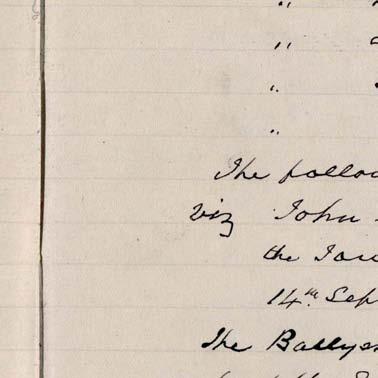 "
"
"
"
The follow
viz John
the Tow
14th Sep
The Ballyes